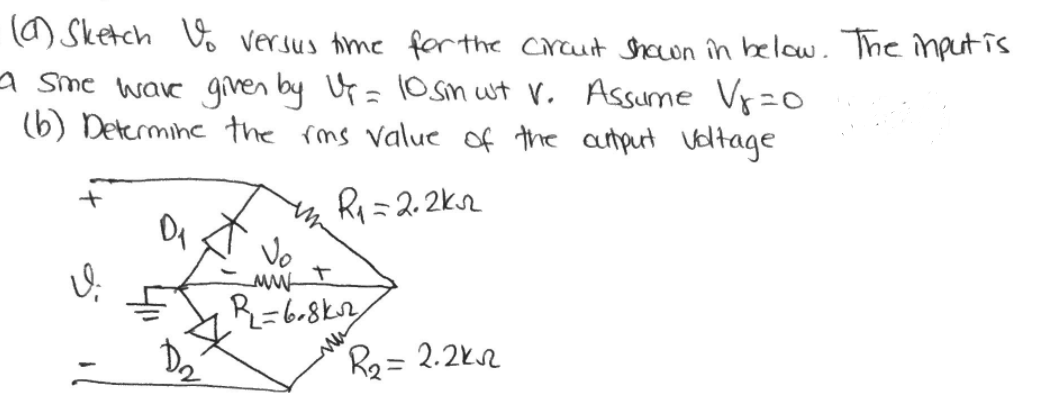 (a) Sketch Vo versus time for the circuit shown in below. The input is
a sine wave given by Vi = 10 sin wt V. Assume Vγ=0
(b) Determine the rms value of the output voltage
+
R1 = 2.2kΩ
D1
Vo
- +
Vi
RL = 6.8kΩ
D2
R2 = 2.2kΩ
-